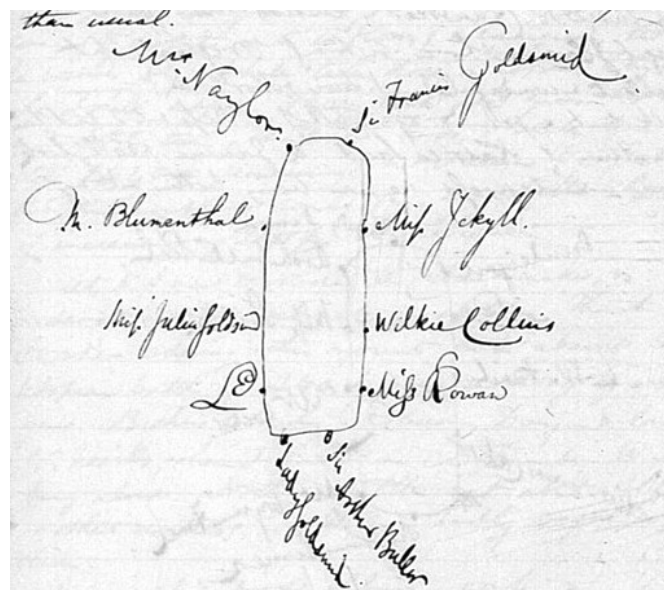 than usual.
Mr. Naylor.
Sir Francis Goldsmid
M. Blumenthal
Miss Jekyll.
Miss Julia Goldsmid
Wilkie Collins
Miss Rowan
Lady Goldsmid.
Sir Arthur Buller